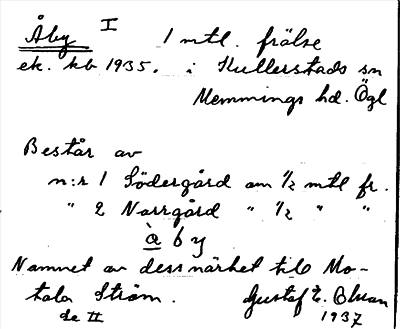 Åby I 1 mtl. frälse
ek. kb 1935. i Kullerstads sn
Memmings hd. Ögl
Består av
n:r 1 Södergård om 1/2 mtl fr.
" 2 Norrgård " 1/2 " "
à b y
Namnet av dess närhet till Mo-
tala Ström. Gustaf E.
de II 1937